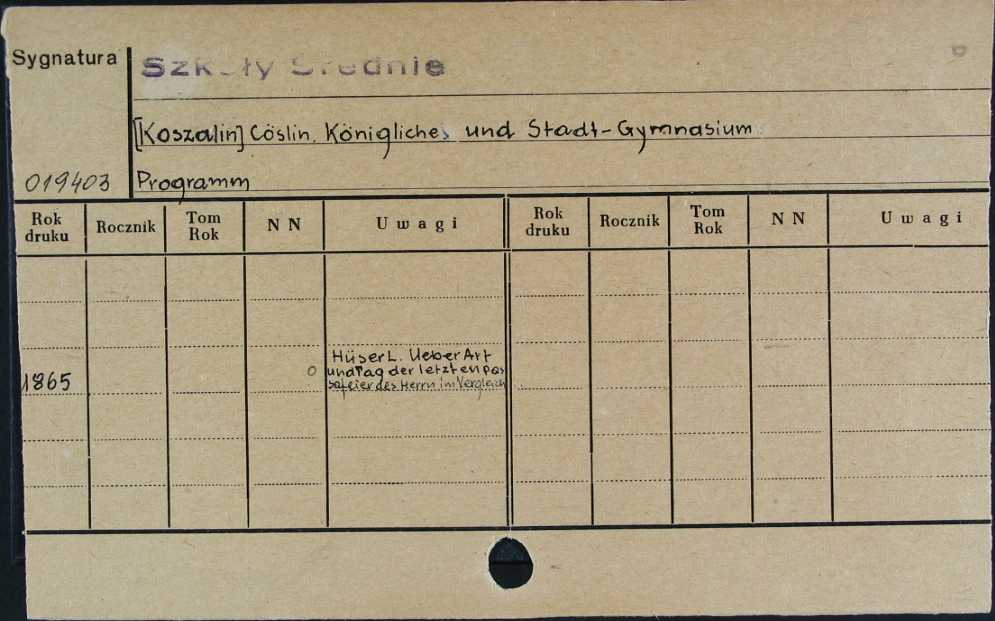 Sygnatura
Szkoły Średnie
[Koszalin] Cöslin. Königliches und Stadt-Gymnasium
019403
Programm
Rok druku Rocznik Tom Rok N N Uwagi Rok druku Rocznik Tom Rok N N Uwagi
Hüser L. Ueber Art
und Tag der letzten pas
1865
safeier des Herrn im Vergleich